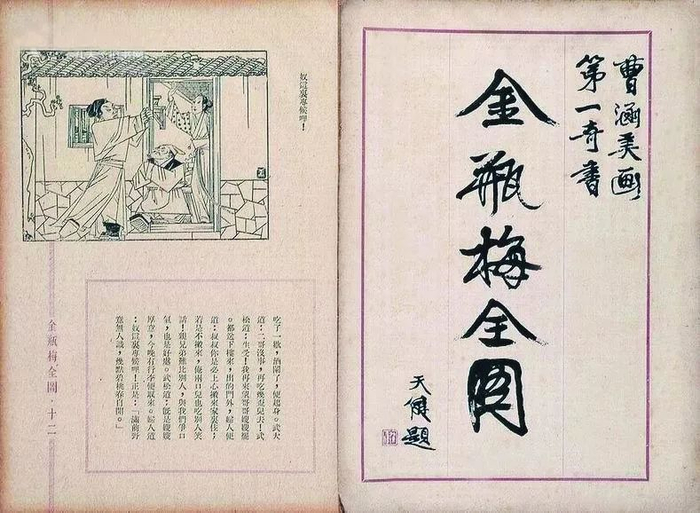 曹涵美画
第一奇書
金瓶梅全圖
天健題
奴這裏專候哩!
吃了一歇,酒闌了,便起身。武大
道:二哥沒事,再吃幾盃兒去!武
松道:生受!我再來望哥哥嫂嫂罷
。都送下樓來,出的門外,婦人便
道:叔叔你是必上心搬來家裏住;
若是不搬來,俺兩口兒也吃別人笑
話!親兄弟難比別人,與我們爭口
氣,也是好處。武松道:旣是嫂嫂
厚意,今晚有行李便取來。婦人道
:奴這裏專候哩!正是:「滿前野
意無人識,幾點碧桃春自開。」
金瓶梅全圖 十二